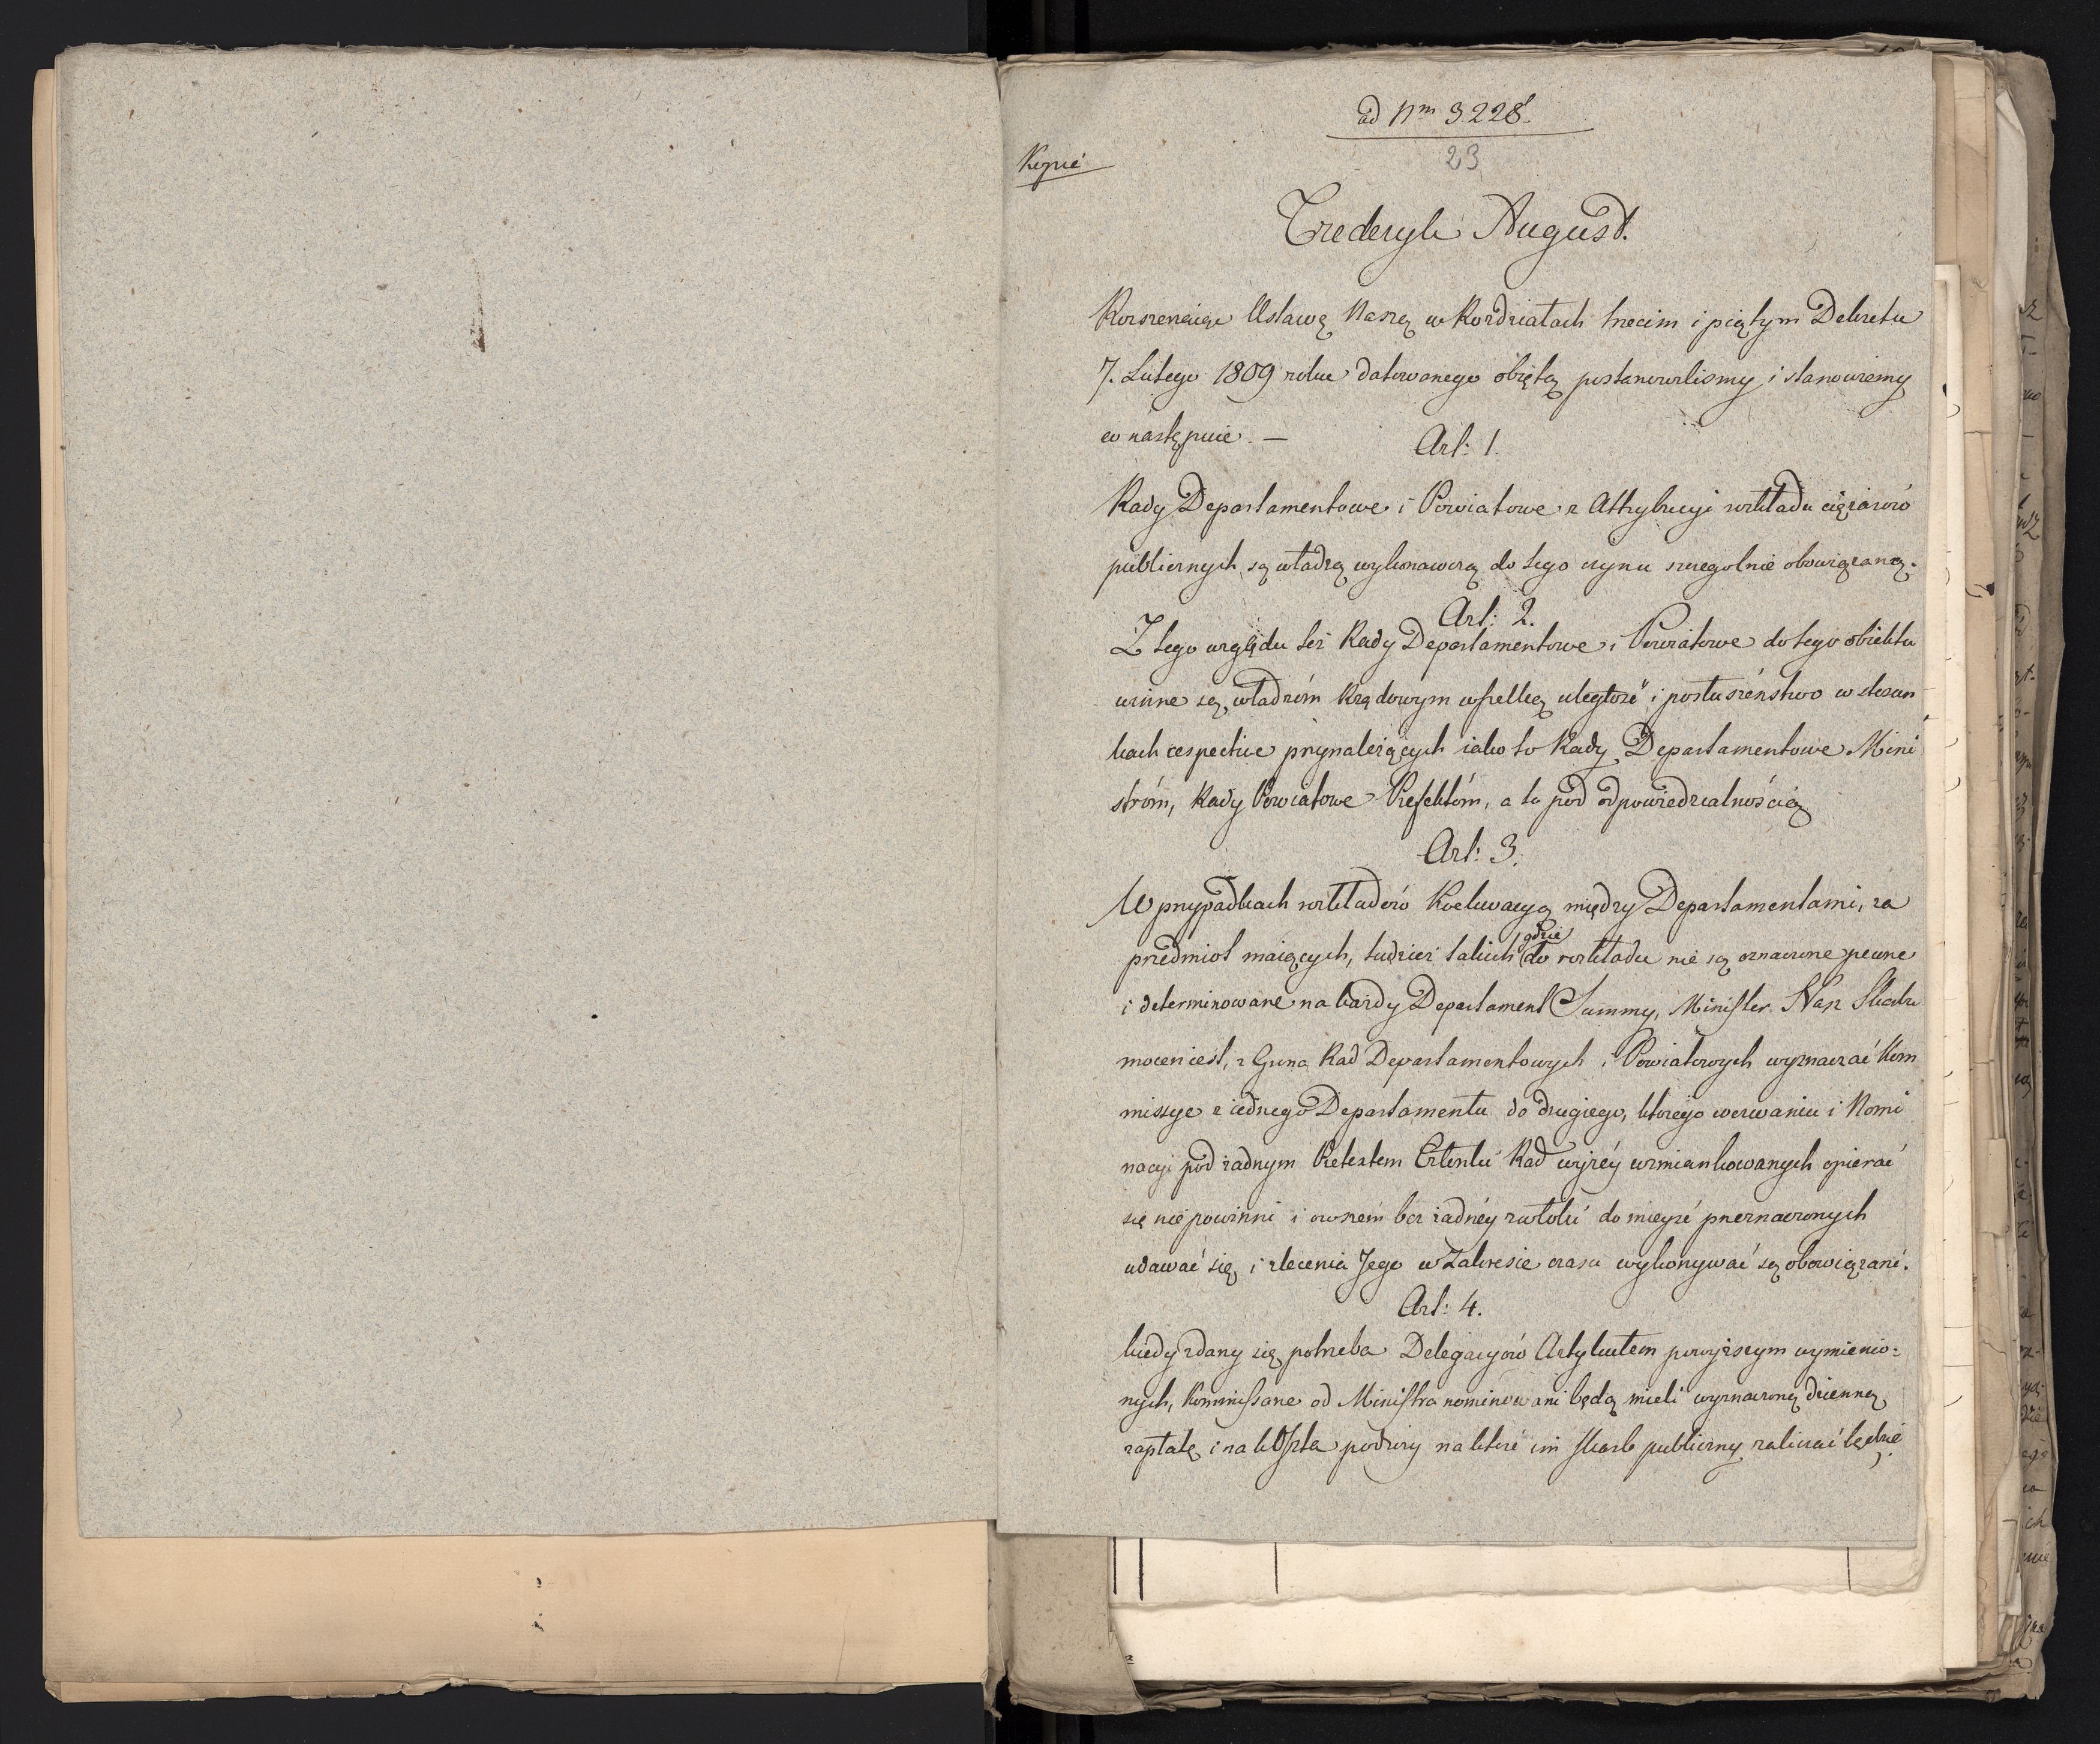 ad Nm 3228.
23
Kopie
Fryderyk August.
Rozszerzaiąc Ustawę Naszą w Rozdziałach trzecim i piątym Dekretu
7. Lutego 1809 roku datowanego obiętą postanowiliśmy i stanowiemy
co następuie. —
Art: 1.
Rady Departamentowe i Powiatowe z Attrybucyi rozkładu ciężarów
publicznych są władzą wykonawczą do tego czynu szczegolnie obowiązaną.
Art: 2.
Z tego względu też Rady Departamentowe i Powiatowe do tego obiektu
winne są władzóm Rządowym wszelką uległość i posłuszeństwo w stosun
kach respective przynależących iako to Rady Departamentowe Mini
stróm, Rady Powiatowe Prefektóm, a to pod odpowiedzialnością
Art: 3.
W przypadkach rozkładów Koekwacyą między Departamentami, za
przedmiot maiących, tudzież takich gdzie do rozkładu nie są oznaczone pewne
i determinowane na każdy Departament Summy, Minister Nasz Skarbu
mocen iest, z Grona Rad Departamentowych i Powiatowych wyznaczać Kom
missye z iednego Departamentu do drugiego, którego wezwaniu i Nomi
nacyi pod żadnym Pretextem Członki Rad wyżéy wzmiankowanych opierać
się nie powinni i owszem bez żadnéy zwłoki do mieysc przeznaczonych
udawać się, i zlecenia Jego w Zakresie czasu wykonywać są obowiązani.
Art: 4.
kiedy zdarzy się potrzeba Delegacyów Artykułem powyższym wymienio:
nych, Kommissarze od Ministra nominowani będą mieli wyznaczoną dzienną
zapłatę i na koszta podróży na które im skarb publiczny zaliczać będzie,